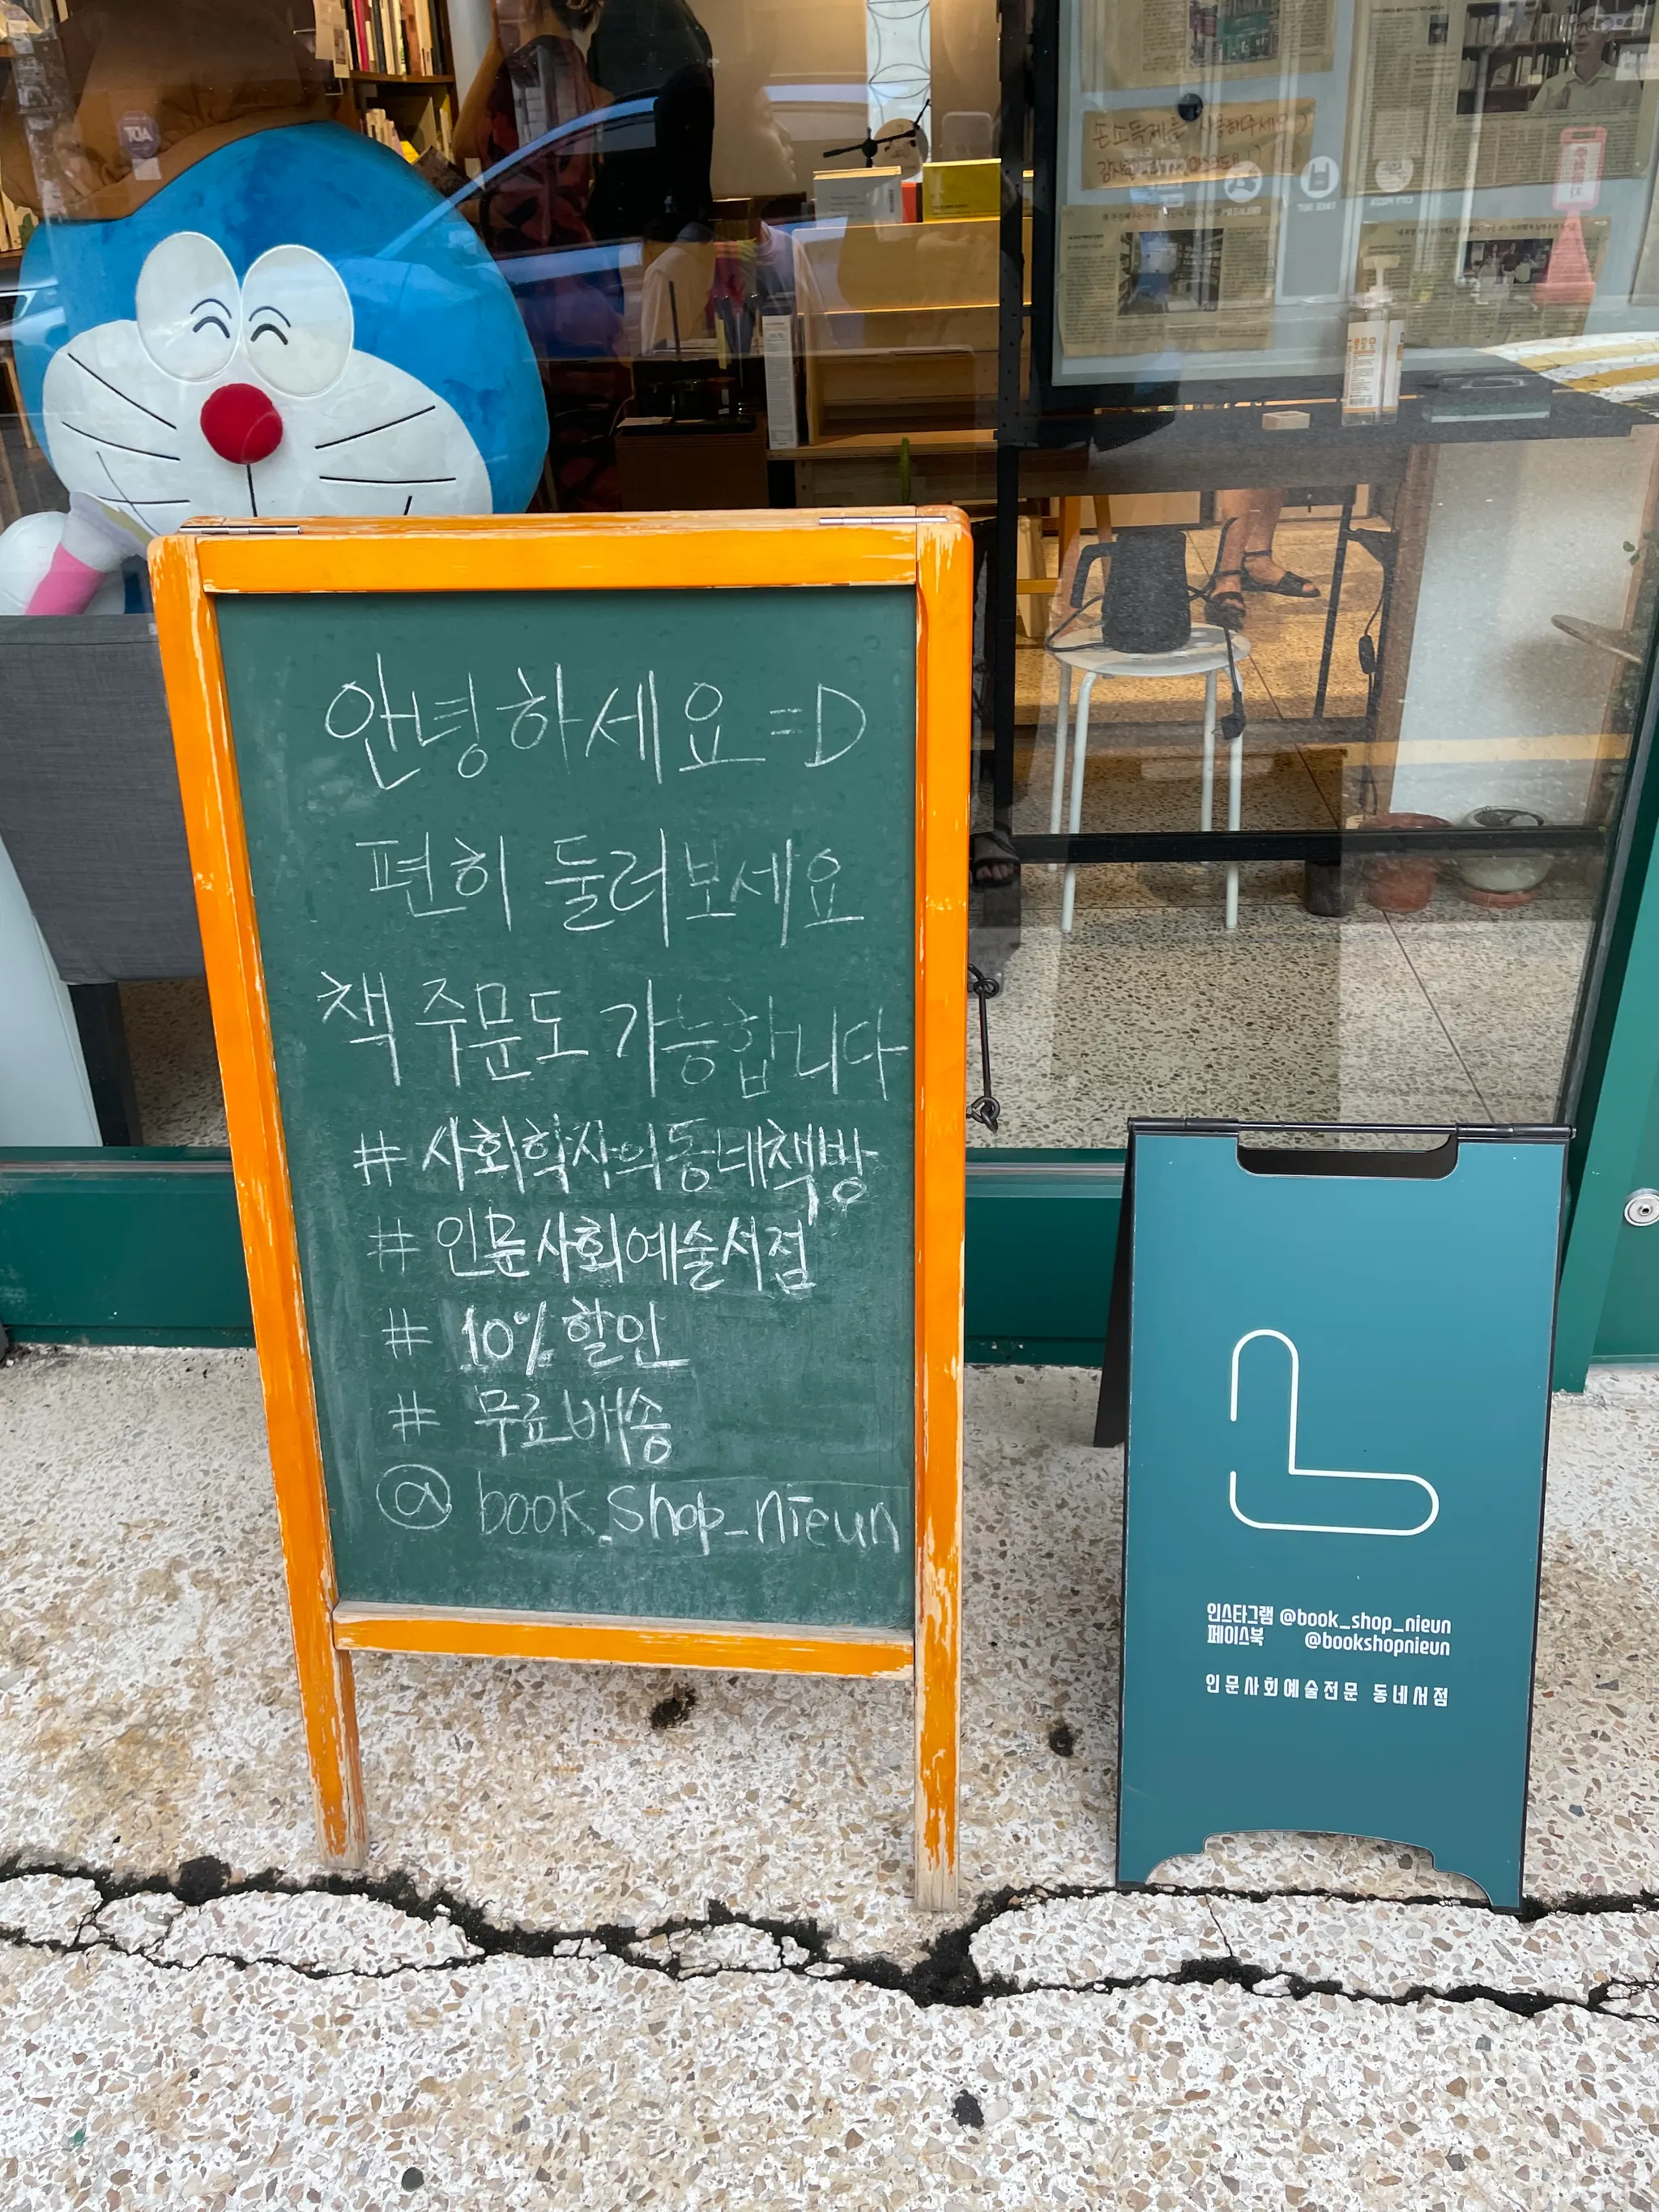 안녕하세요 =D
편히 둘러보세요
책 주문도 가능합니다
# 사회학자의동네책방
# 인문사회예술서점
# 10% 할인
# 무료배송
@ book_shop_nieun
인스타그램 @book_shop_nieun
페이스북 @bookshopnieun
인문사회예술전문 동네서점
손소독제를 사용해주세요